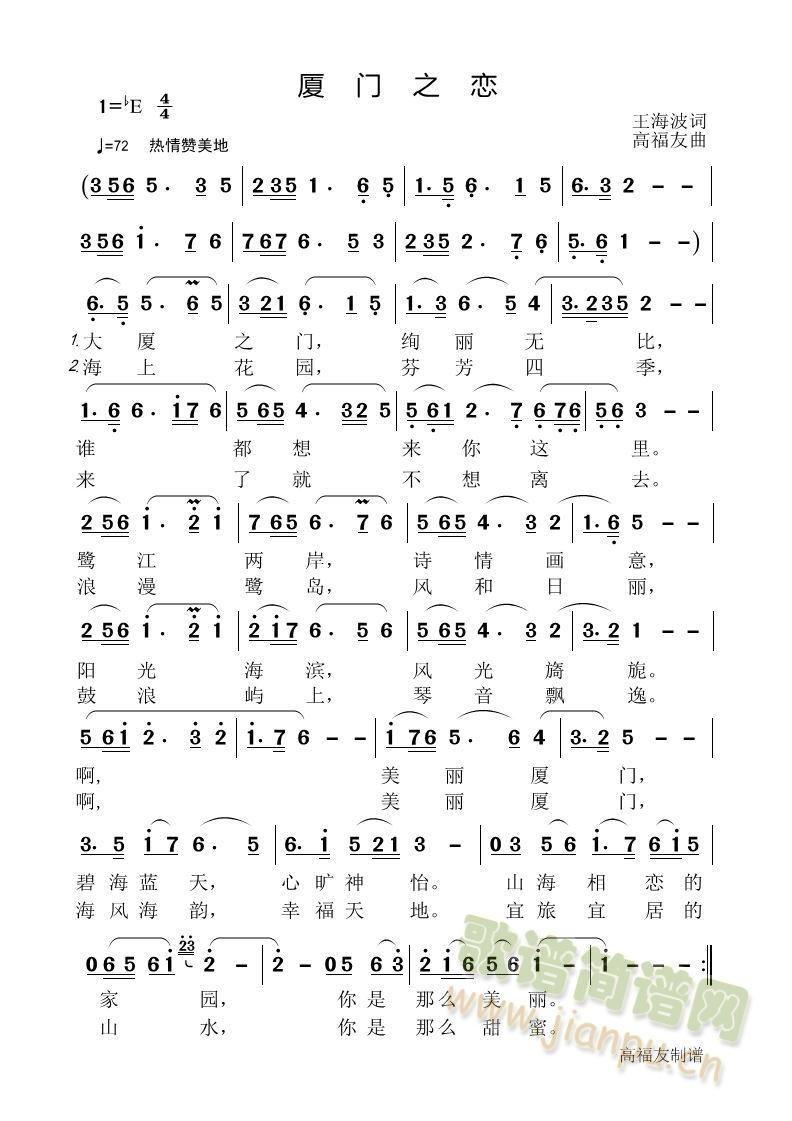 厦门之恋
1=♭E 4/4
王海波词
♩=72 热情赞美地
高福友曲
(3 5 6 5 · 3 5 | 2 3 5 1 · 6 5 | 1 · 5 6 · 1 5 | 6 · 3 2 - - |
3 5 6 1 · 7 6 | 7 6 7 6 · 5 3 | 2 3 5 2 · 7 6 | 5 · 6 1 - - )
6 · 5 5 · 6 5 | 3 2 1 6 · 1 5 | 1 · 3 6 · 5 4 | 3 · 2 3 5 2 - - |
1. 大厦之门，绚丽无比，
2. 海上花园，芬芳四季，
1 · 6 6 · 1 7 6 | 5 6 5 4 · 3 2 5 | 5 6 1 2 · 7 6 7 6 | 5 6 3 - - |
谁都想来你这里。
来了就不想离去。
2 5 6 1 · 2 1 | 7 6 5 6 · 7 6 | 5 6 5 4 · 3 2 | 1 · 6 5 - - |
鹭江两岸，诗情画意，
浪漫鹭岛，风和日丽，
2 5 6 1 · 2 1 | 2 1 7 6 · 5 6 | 5 6 5 4 · 3 2 | 3 · 2 1 - - |
阳光海滨，风光旖旎。
鼓浪屿上，琴音飘逸。
5 6 1 2 · 3 2 | 1 · 7 6 - - | 1 7 6 5 · 6 4 | 3 · 2 5 - - |
啊，美丽厦门，
啊，美丽厦门，
3 · 5 1 7 6 · 5 | 6 · 1 5 2 1 3 - | 0 3 5 6 1 · 7 6 1 5 |
碧海蓝天，心旷神怡。山海相恋的
海风海韵，幸福天地。宜旅宜居的
0 6 5 6 1 2 3 2 - | 2 - 0 5 6 3 | 2 1 6 5 6 1 - | 1 - - - :||
家园，你是那么美丽。
山水，你是那么甜蜜。
歌谱简谱网
www.jianpu.cn
高福友制谱